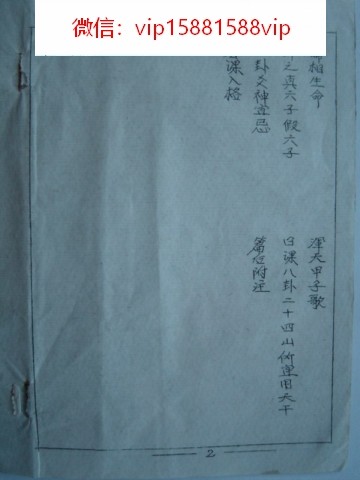 微信：vip15881588vip
相生命
之真六子假六子
卦爻神宜忌
课入格
渾天甲子歌
日课八卦二十四山所運用天干
附注
2